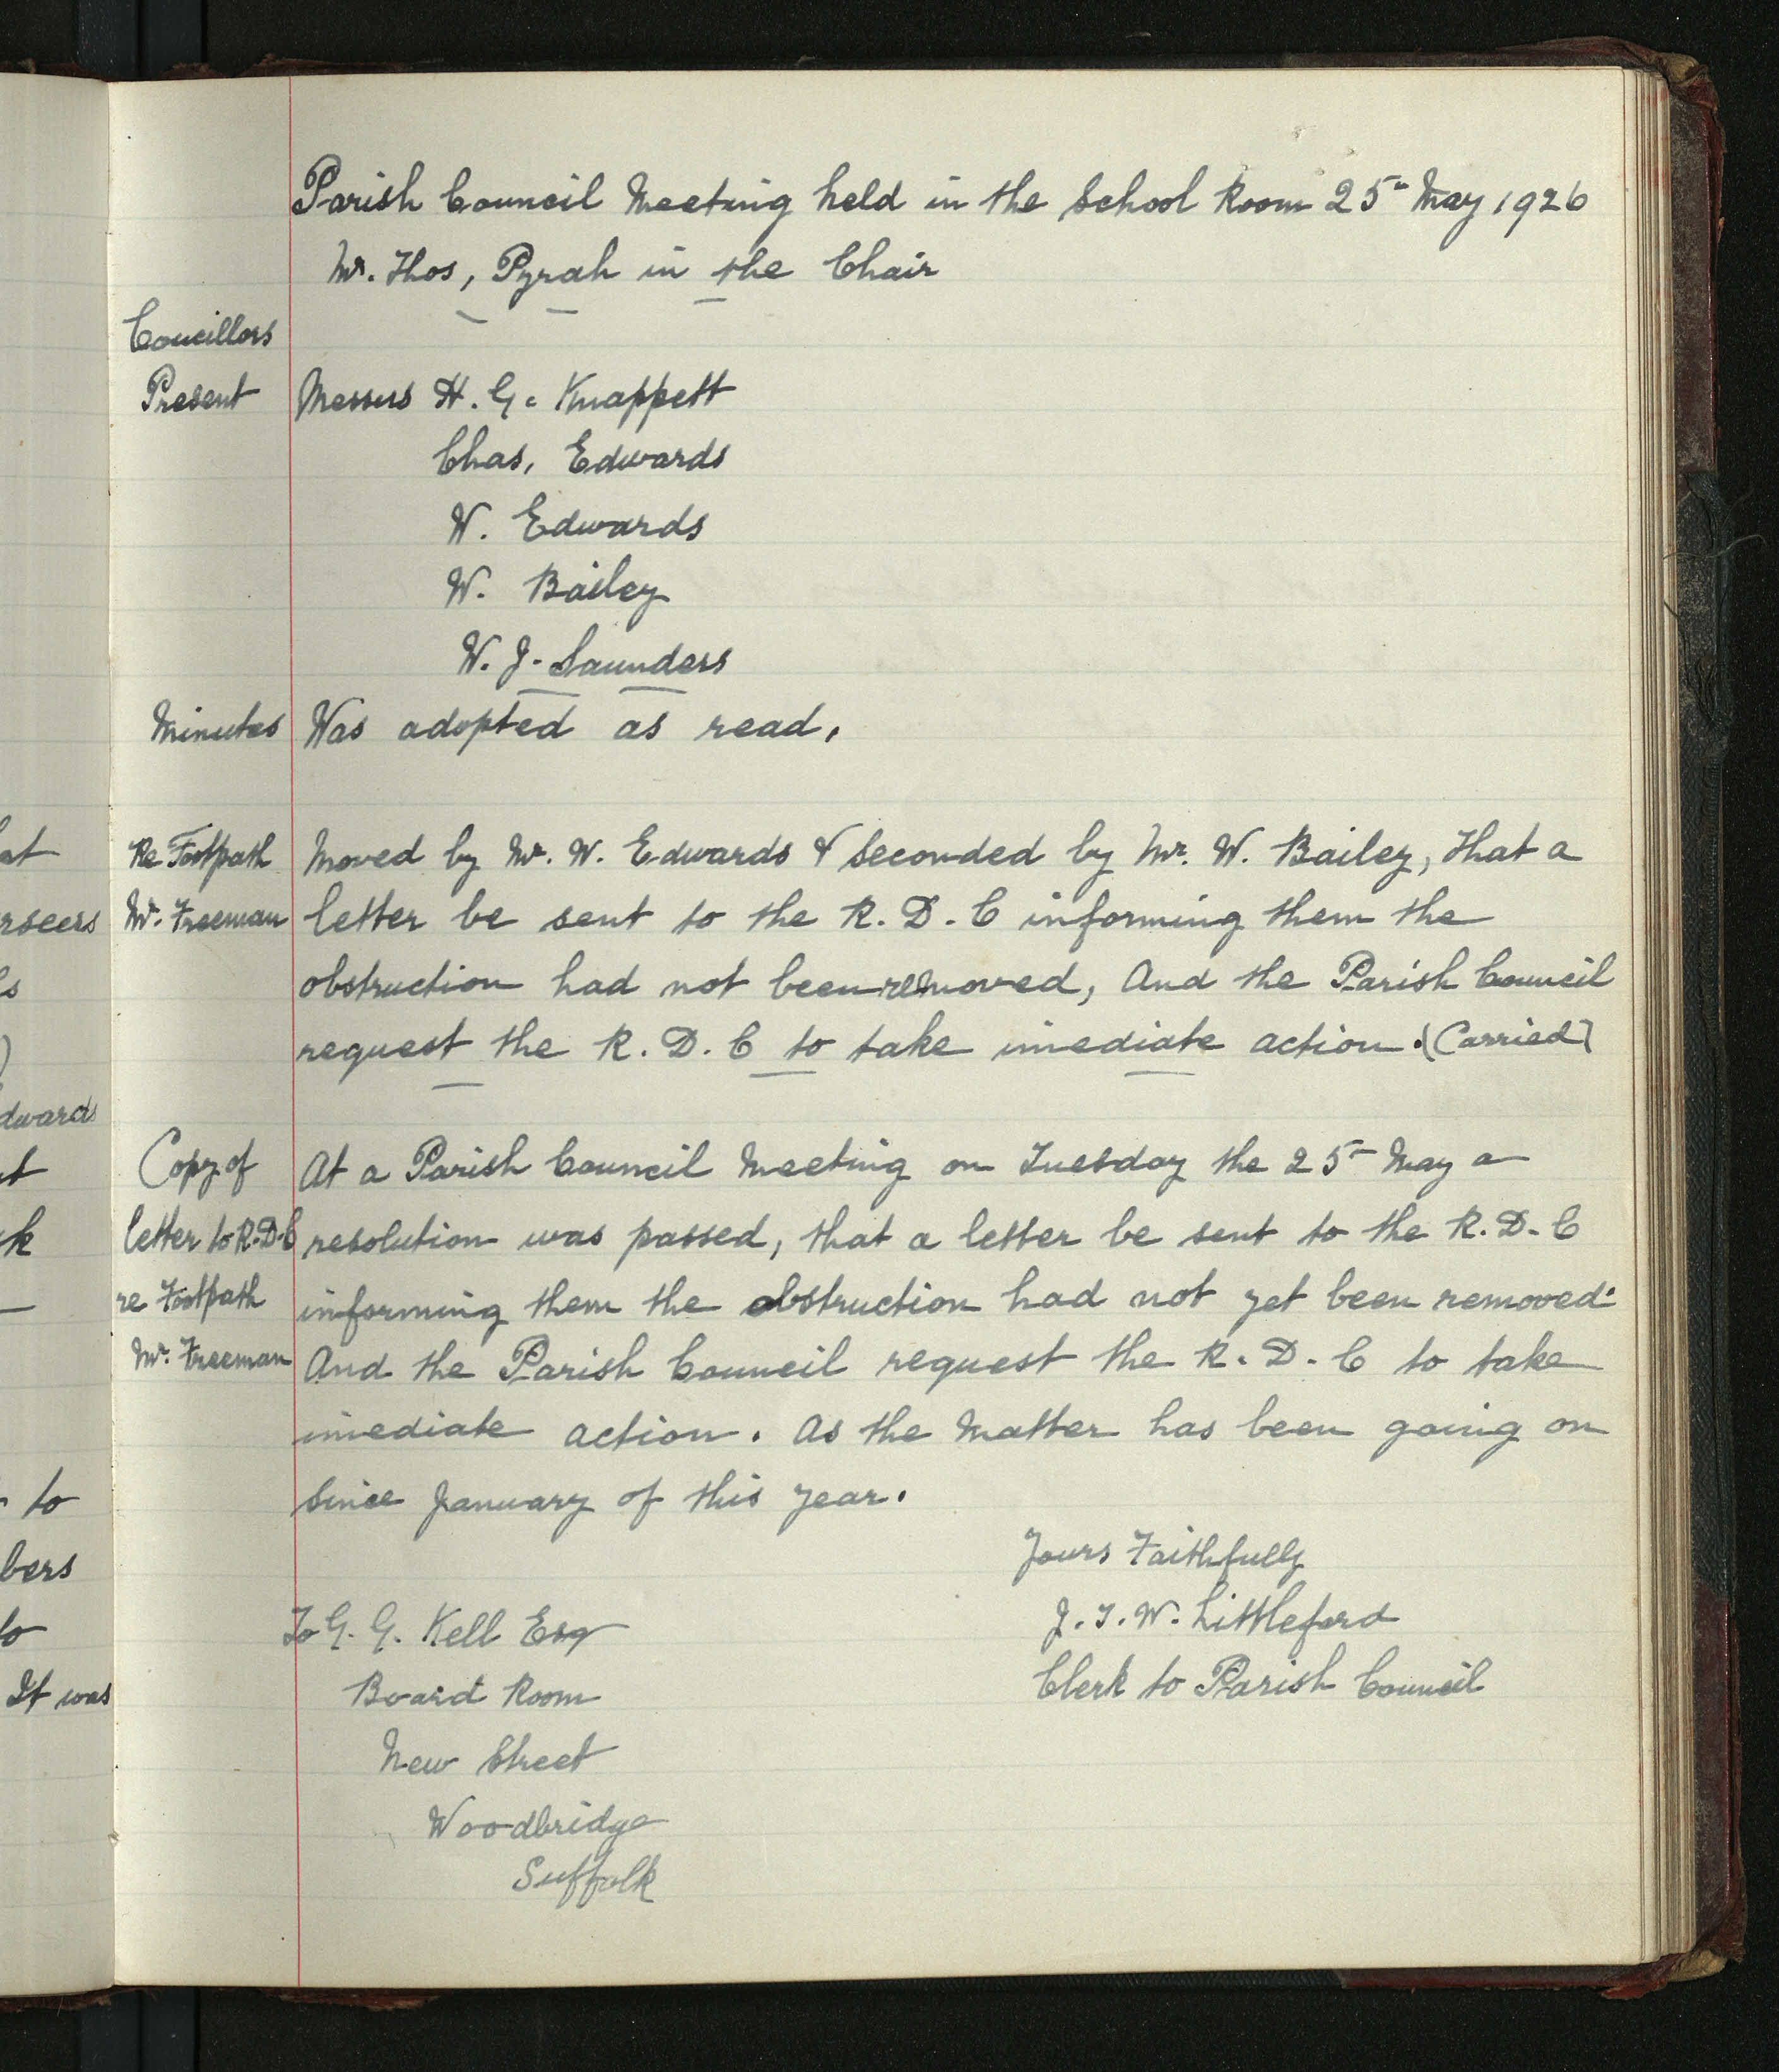 Parish Council Meeting held in the School Room 25th May 1926
Mr. Thos, Pyrah in the Chair
Coucillors
Present Messrs H. G. Knappett
Chas, Edwards
W. Edwards
W. Bailey
W. J. Saunders
Minutes Was adopted as read.
Re Footpath Moved by Mr. W. Edwards & Seconded by Mr. W. Bailey, that a
Mr. Freeman letter be sent to the R. D. C informing them the
obstruction had not been removed, And the Parish Council
request the R. D. C to take imediate action. (Carried)
Copy of At a Parish Council Meeting on Tuesday the 25th May a
letter to R.D.C resolution was passed, that a letter be sent to the R. D. C
re Footpath informing them the obstruction had not yet been removed.
Mr. Freeman And the Parish Council request the R. D. C to take
imediate action. As the Matter has been going on
Since January of this year.
Yours Faithfully
To G. G. Kell Esq J. T. W. Littleford
Board Room Clerk to Parish Council
New Street
Woodbridge
Suffolk
at
rseers
dwards
k
to
bers
to
It was